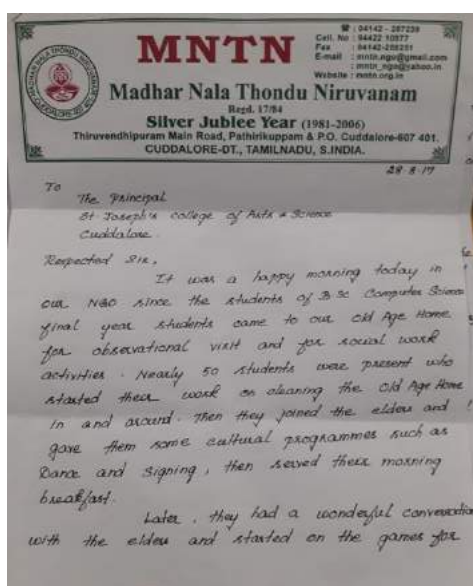 ☎ : 04142 - 287239
Cell. No : 94422 10577
Fax : 04142-288251
E-mail : mntn.ngo@gmail.com
: mntn_ngo@yahoo.in
Website : mntn.org.in
MNTN
Madhar Nala Thondu Niruvanam
Regd. 17/84
Silver Jublee Year (1981-2006)
Thiruvendhipuram Main Road, Pathirikuppam & P.O. Cuddalore-607 401.
CUDDALORE-DT., TAMILNADU, S.INDIA.
28-8-17
To
The Principal
St. Joseph's College of Arts & Science
Cuddalore.
Respected Sir,
It was a happy morning today in
our NGO since the students of B.Sc Computer Science
final year students came to our Old Age Home
for observational visit and for social work
activities. Nearly 50 students were present who
started their work on cleaning the Old Age Home
in and around. Then they joined the elders and
gave them some cultural programmes such as
Dance and Signing, then served their morning
breakfast.
Later, they had a wonderful conversation
with the elders and started on the games for